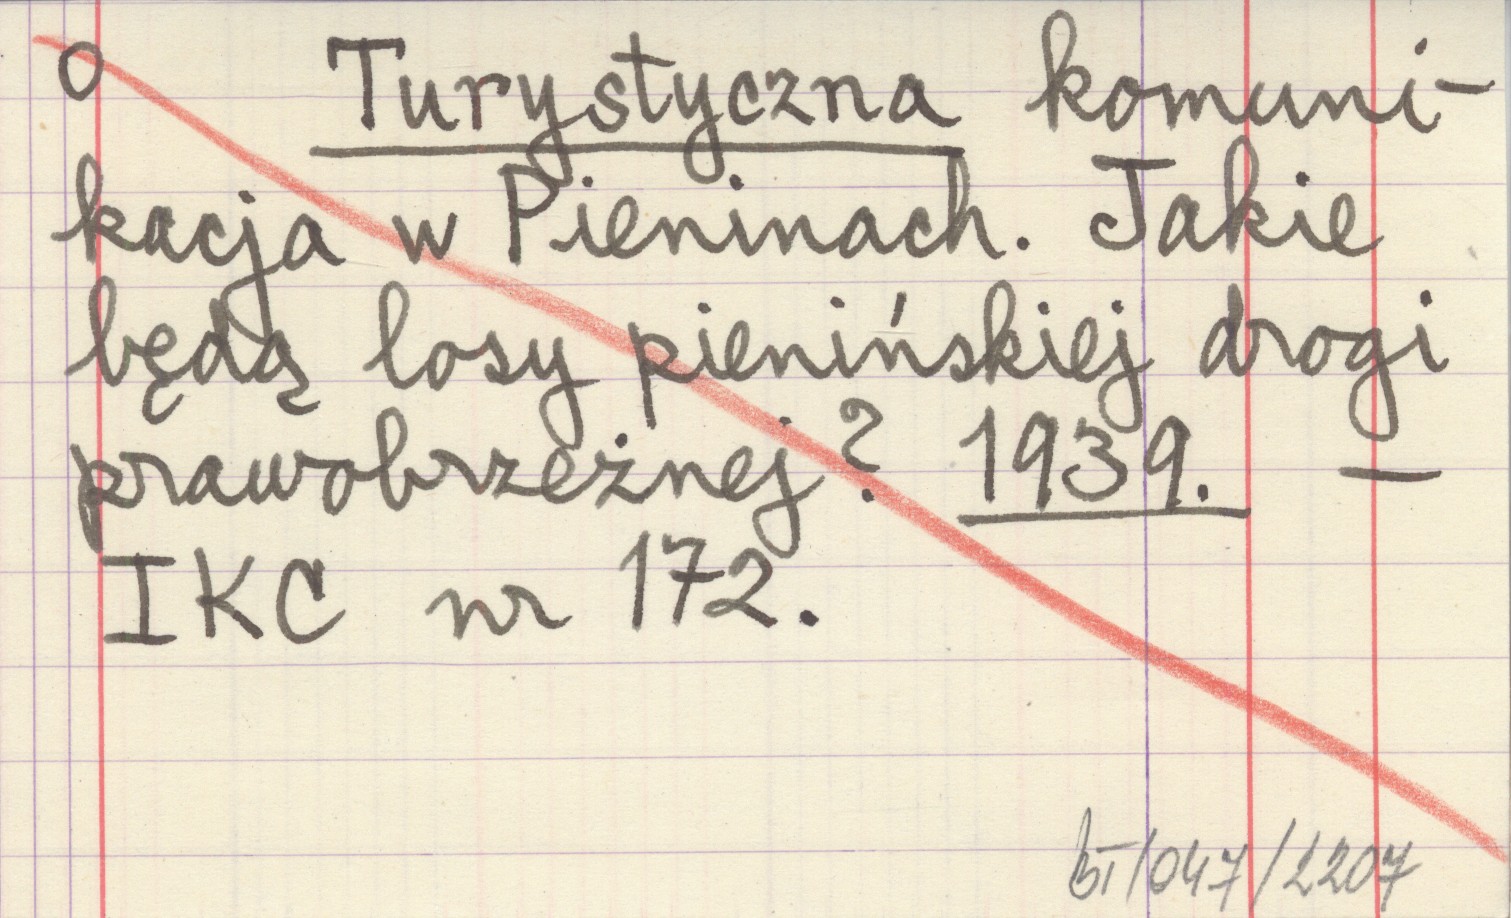 o Turystyczna komuni-
kacja w Pieninach. Jakie
będą losy pienińskiej drogi
prawobrzeżnej? 1939. —
IKC nr 172.
BT/047/2207